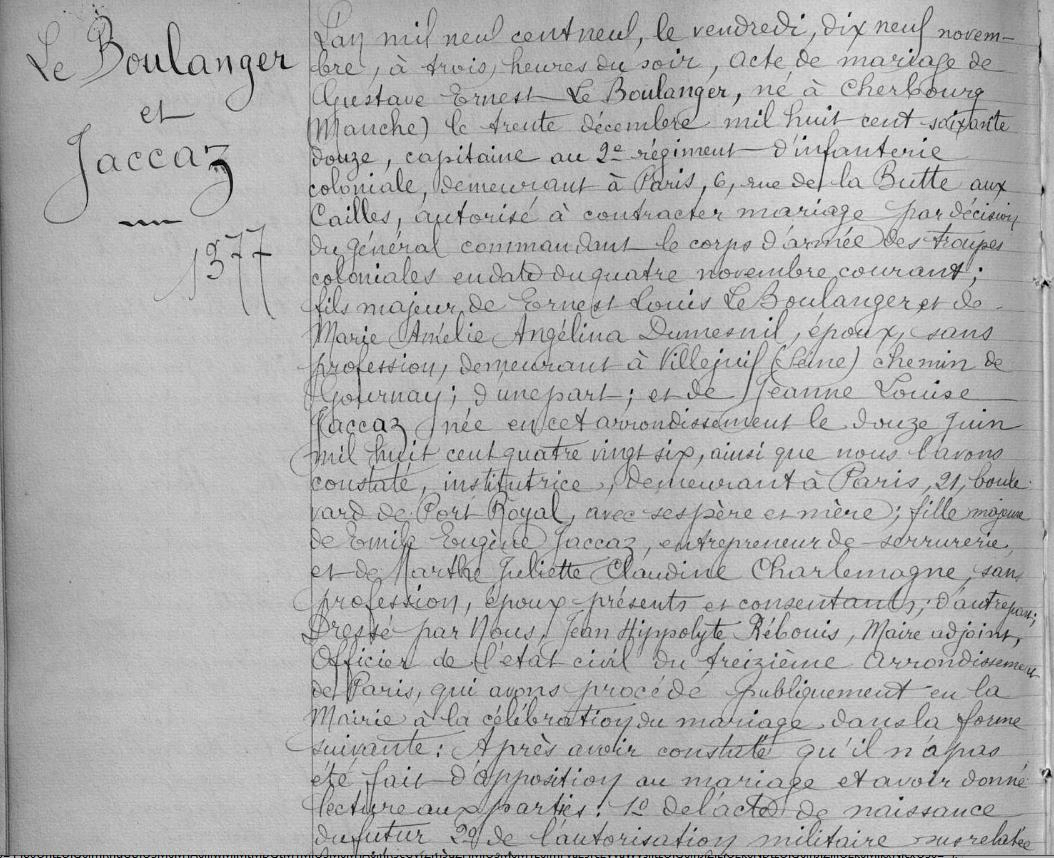 Le Boulanger
et
Jaccaz
1377
L'an mil neuf cent neuf, le vendredi, dix neuf novem-
bre, à trois heures du soir, acte de mariage de
Gustave Ernest Le Boulanger, né à Cherbourg
(Manche) le trente décembre mil huit cent soixante
douze, capitaine au 2e régiment d'infanterie
coloniale, demeurant à Paris, 6, rue de la Butte aux
Cailles, autorisé à contracter mariage par décision
du général commandant le corps d'armée des troupes
coloniales en date du quatre novembre courant;
fils majeur de Ernest Louis Le Boulanger et de
Marie Amélie Angélina Dumesnil, époux, sans
profession, demeurant à Villejuif (Seine) chemin de
Gournay; d'une part; et de Jeanne Louise
Jaccaz née en cet arrondissement le douze juin
mil huit cent quatre vingt six, ainsi que nous l'avons
constaté, institutrice, demeurant à Paris, 21, boule-
vard de Port Royal, avec ses père et mère; fille majeure
de Emile Eugène Jaccaz, entrepreneur de serrurerie,
et de Marthe Juliette Claudine Charlemagne, sans
profession, époux présents et consentants, d'autre part;
Dressé par Nous, Jean Hippolyte Rébouis, Maire adjoint,
Officier de l'état civil du treizième arrondissement
de Paris, qui avons procédé publiquement en la
Mairie à la célébration du mariage dans la forme
suivante: Après avoir constaté qu'il n'a pas
été fait d'opposition au mariage et avoir donné
lecture aux parties: 1o de l'acte de naissance
du futur 2o de l'autorisation militaire susrelatée